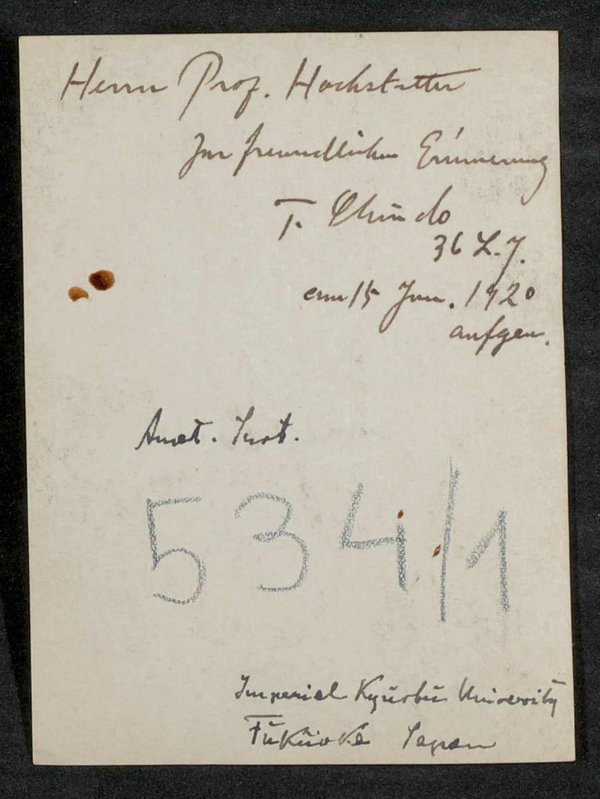 Herrn Prof. Hochstetter
zur freundlichen Erinnerung
T. Shindo
36 L. J.
am 15 Jan. 1920
aufgen.
Anat. Inst.
534/1
Imperial Kyūshū University
Fukuoka Japan